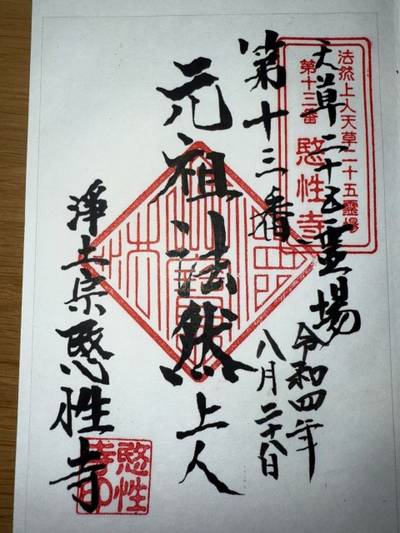 法然上人天草二十五霊場
第十三番 愍性寺
天草二十五霊場
第十三番
令和四年
八月二十八日
元祖法然上人
浄土宗愍性寺
愍性寺印